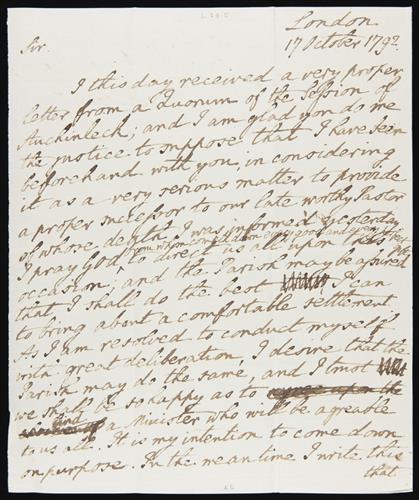 London
17 October 1792.
Sir,
I this day received a very proper
letter from a Quorum of the Session of
Auchinleck; and I am glad you do me
the justice to suppose that I have been
beforehand with you, in considering
it as a very serious matter to provide
a proper successor to our late worthy Pastor
of whose death I was informed yesterday.
from whom cometh down every good and
I pray GOD to direct us all upon this
occasion; and the Parish may be assured
that I shall do the best I can
to bring about a comfortable settlement
As I am resolved to conduct myself
with great deliberation, I desire that the
Parish may do the same, and I trust
we shall be so happy as to agree upon the
find
a Minister who will be agreable
to us all. It is my intention to come down
on purpose. In the mean time I write this
that